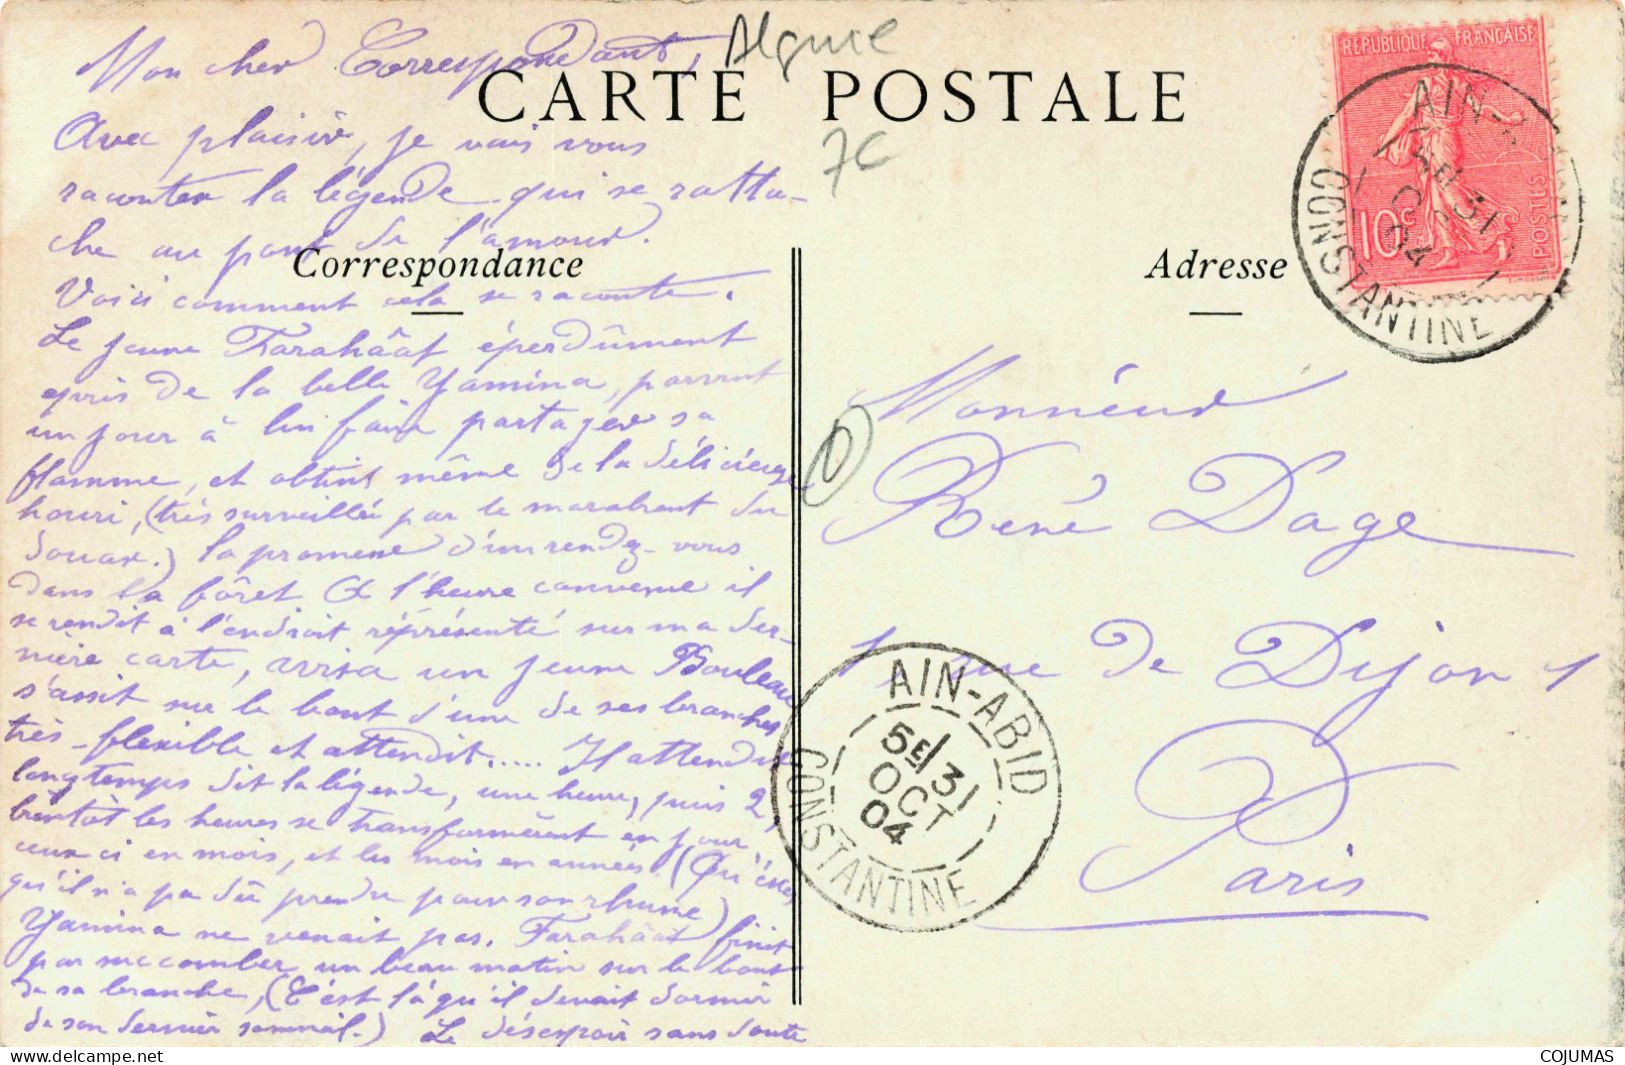 Algérie
CARTE POSTALE
7€
Mon cher Correspondant,
Avec plaisir, je vais vous
raconter la légende qui se ratta-
che au pont de l'amour.
Correspondance
Voici comment cela se raconte.
Le jeune Farahâât éperdûment
épris de la belle Yamina, parvint
un jour à lui faire partager sa
flamme, et obtint même de la délicieuse
houri, (très surveillée par le marabout du
douar.) la promene d'un rendez-vous
dans la fôret A l'heure convenue il
se rendit à l'endroit réprésenté sur ma der-
nière carte, avisa un jeune Bouleau
s'assit sur le bout d'une de ses branches
très-flexible et attendit..... Il attendit
longtemps dit la légende, une heure, puis 2,
bientôt les heures se transformèrent en jour
ceux ci en mois, et les mois en années (Qu'
qu'il n'a pa dû prendre pour son rhume)
Yamina ne venait pas. Farahâât finit
par succomber un beau matin sur le bout
de sa branche, (C'est là qu'il devait dormir
de son dernier sommeil.) Le désespoir sans doute
Adresse
REPUBLIQUE FRANÇAISE
10c
POSTES
AIN-
5E 31
OCT
04
CONSTANTINE
Monsieur
René Dage
1 rue de Dijon 1
Paris
AIN-ABID
5E 31
OCT
04
CONSTANTINE
COJUMAS